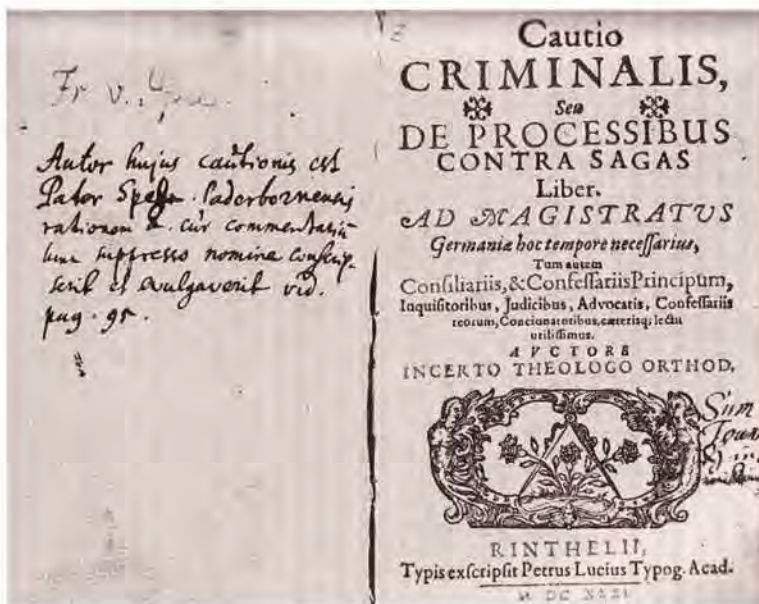 Fr. v. Spee.
Autor hujus cautionis est
Pater Spe Paderbornensis
rationem cur commentariū
hunc suppresso nomine conscrip-
serit et evulgaverit vid.
pag. 95.
Cautio
CRIMINALIS,
Seu
DE PROCESSIBUS
CONTRA SAGAS
Liber.
AD MAGISTRATVS
Germaniæ hoc tempore neceſſarius,
Tum autem
Conſiliariis, & Confeſſariis Principum,
Inquiſitoribus, Judicibus, Advocatis, Confeſſariis
reorum, Concionatoribus, cæteriſq; lectu
utiliſſimus.
AVCTORE
INCERTO THEOLOGO ORTHOD.
Sum
RINTHELII,
Typis exſcripſit Petrus Lucius Typog. Acad.
M DC XXXI